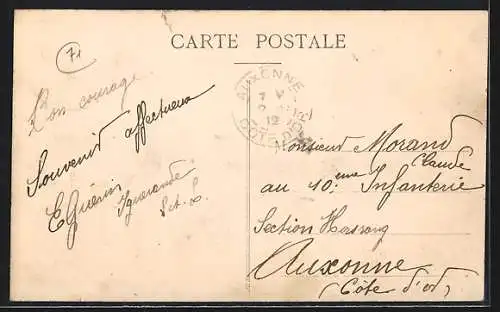 71
CARTE POSTALE
Bon courage
Souvenir affectueux
E Guérin
Iguerande
S.et.L.
AUXONNE
12
CÔTE D'OR
Monsieur Morand
Claude
au 10.eme Infanterie
Section
Auxonne
(Côte d'or)